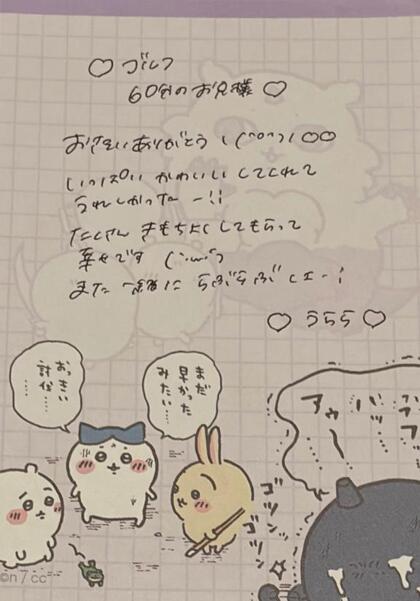 ♡ ゴルフ
60分のお兄様 ♡
おさそいありがとう！(^o^)！♡♡
いっぱい かわいい してくれて
うれしかったー!!
たくさん きもちよくしてもらって
幸せです (´ω`)
また 一緒に らぶらぶしよー！
♡ うらら ♡
おっきい
討伐……
まだ
早かった
みたい…
アゥ
バッ
ゴツン
ゴツン
©n / cc